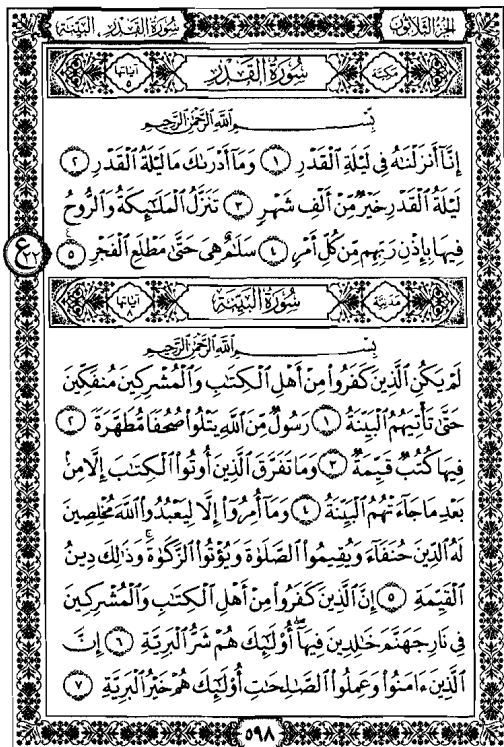 الجزء الثلاثون
سورة القدر ، البينة
مكية
سُورَةُ الْقَدْرِ
آياتها ٥
بِسْمِ اللَّهِ الرَّحْمَٰنِ الرَّحِيمِ
إِنَّآ أَنزَلْنَٰهُ فِي لَيْلَةِ ٱلْقَدْرِ ١ وَمَآ أَدْرَىٰكَ مَا لَيْلَةُ ٱلْقَدْرِ ٢
لَيْلَةُ ٱلْقَدْرِ خَيْرٌ مِّنْ أَلْفِ شَهْرٍ ٣ تَنَزَّلُ ٱلْمَلَٰٓئِكَةُ وَٱلرُّوحُ
فِيهَا بِإِذْنِ رَبِّهِم مِّن كُلِّ أَمْرٍ ٤ سَلَٰمٌ هِيَ حَتَّىٰ مَطْلَعِ ٱلْفَجْرِ ٥
ع ٢٢
مدنية
سُورَةُ الْبَيِّنَةِ
آياتها ٨
بِسْمِ اللَّهِ الرَّحْمَٰنِ الرَّحِيمِ
لَمْ يَكُنِ ٱلَّذِينَ كَفَرُوا۟ مِنْ أَهْلِ ٱلْكِتَٰبِ وَٱلْمُشْرِكِينَ مُنفَكِّينَ
حَتَّىٰ تَأْتِيَهُمُ ٱلْبَيِّنَةُ ١ رَسُولٌ مِّنَ ٱللَّهِ يَتْلُوا۟ صُحُفًا مُّطَهَّرَةً ٢
فِيهَا كُتُبٌ قَيِّمَةٌ ٣ وَمَا تَفَرَّقَ ٱلَّذِينَ أُوتُوا۟ ٱلْكِتَٰبَ إِلَّا مِنۢ
بَعْدِ مَا جَآءَتْهُمُ ٱلْبَيِّنَةُ ٤ وَمَآ أُمِرُوٓا۟ إِلَّا لِيَعْبُدُوا۟ ٱللَّهَ مُخْلِصِينَ
لَهُ ٱلدِّينَ حُنَفَآءَ وَيُقِيمُوا۟ ٱلصَّلَوٰةَ وَيُؤْتُوا۟ ٱلزَّكَوٰةَ ۚ وَذَٰلِكَ دِينُ
ٱلْقَيِّمَةِ ٥ إِنَّ ٱلَّذِينَ كَفَرُوا۟ مِنْ أَهْلِ ٱلْكِتَٰبِ وَٱلْمُشْرِكِينَ
فِي نَارِ جَهَنَّمَ خَٰلِدِينَ فِيهَآ ۚ أُو۟لَٰٓئِكَ هُمْ شَرُّ ٱلْبَرِيَّةِ ٦ إِنَّ
ٱلَّذِينَ ءَامَنُوا۟ وَعَمِلُوا۟ ٱلصَّٰلِحَٰتِ أُو۟لَٰٓئِكَ هُمْ خَيْرُ ٱلْبَرِيَّةِ ٧
٥٩٨